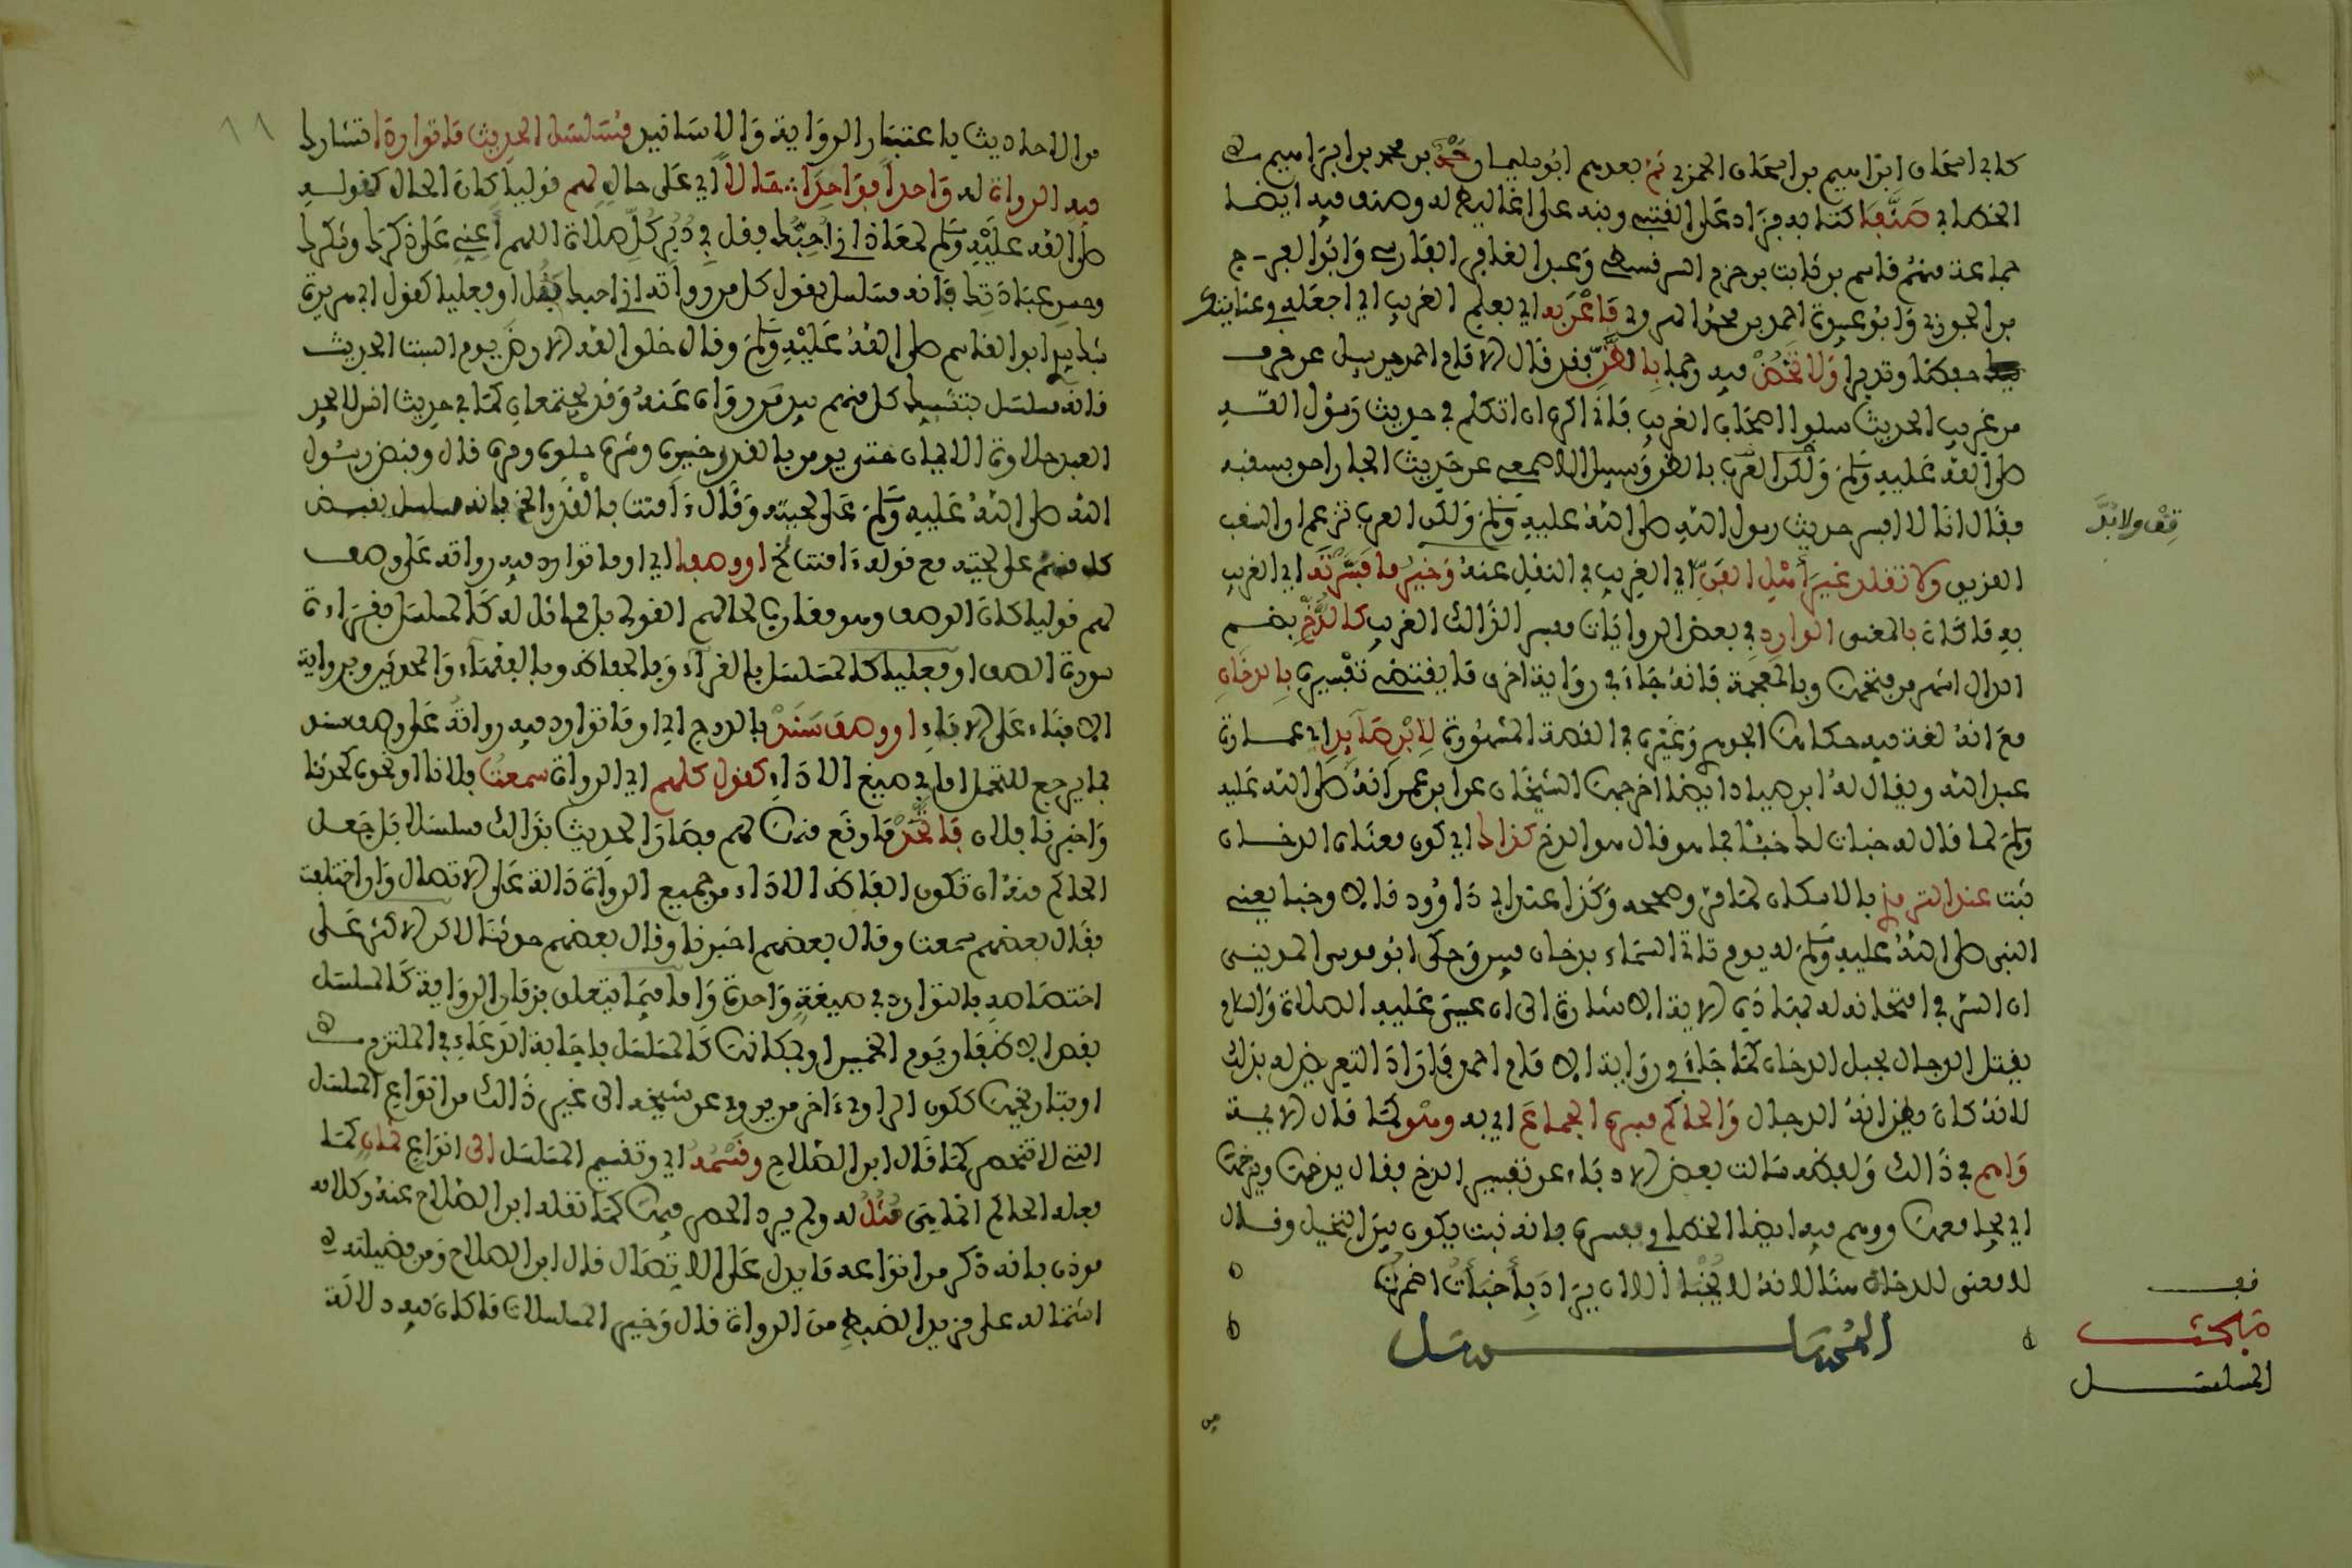 كابي اسحاق ابراهيم بن اسحاق الحربي ثم بعدهم ابو سليمان حمد بن محمد بن ابراهيم
الخطابي صنفا كتابه فزاد على القتبي ونبه على اغاليطه له وصنف فيه ايضا
جماعة منهم قاسم بن ثابت بن حزم السرقسطي وعبد الغافر الفارسي وابو الفرج
بن الجوزي وابو عبيدة احمد بن محمد الهروي فاعن به اي بعلم الغريب اي اجعله في عنايتك
حفظا وتدبرا ولا تخض فيه رجما بالظن فقد قال الامام احمد حين سئل عن حرف
من غريب الحديث سلوا اصحاب الغريب فاني اكره ان اتكلم في حديث رسول الله
صلى الله عليه وسلم بالظن وسئل الاصمعي عن حديث الجار احق بسقبه
فقال انا لا افسر حديث رسول الله صلى الله عليه وسلم ولكن العرب تزعم ان السقب
اللزيق ولا تقلد غير اهل الفن اي الغريب في النقل عنه وخير ما فسرته اي الغريب
به ما كان بالمعنى الوارد في بعض الروايات مفسر الذالك الغريب كالدخ بضم
الدال اشهر من فتحها وبالمعجمة فانه جاء في رواية اخرى ما يقتضي تفسيره بالدخان
مع انه لغة فيه حكاها الجوهري وغيره في القصة المشهورة لابن صائد اي عمارة
عبد الله ويقال له ابن صياد ايضا اخرجها الشيخان عن ابن عمر انه صلى الله عليه
وسلم لما قال له خبات لك خبئا فما هو قال هو الدخ كذاك اي كون معناه الدخان
ثبت عند الترمذي بالاسكان لما مر وصححه وكذا عند ابي داوود قالا وخبا يعني
النبي صلى الله عليه وسلم له يوم تاتي السماء بدخان مبين وحكى ابو موسى المديني
ان السر في امتحانه له بهاذي الاية الاشارة الى ان عيسى عليه الصلاة والسلام
يقتل الدجال بجبل الدخان كما جاء في رواية الامام احمد فاراد التعريض له بذلك
لانه كان يظن انه الدجال والحاكم فسره الجماع اي به وهو كما قال الايمة
واهم في ذالك ولفظه سالت بعض الادباء عن تفسير الدخ فقال يدخها ويزخها
اي يجامعها ووهم فيه ايضا الخطابي وفسره بانه نبت يكون بين النخيل وقال
لا معنى للدخان هنا لانه لا يخبا الا ان يراد بخبات اضمرت
المسلسل
قف ولا بد
قف
مبحث
المسلسل
من الاحاديث باعتبار الرواية والاسانيد مسلسل الحديث ما تواردا تشارك
فيه الرواة له واحدا فواحدا حالا اي على حال لهم قوليا كان الحال كقوله
صلى الله عليه وسلم لمعاذ اني احبك فقل في دبر كل صلاة اللهم اعني على ذكرك وشكرك
وحسن عبادتك فانه مسلسل بقول كل من رواته اني احبك فقل او فعليا كقول ابي هريرة
شبك بيدي ابو القاسم صلى الله عليه وسلم وقال خلق الله الارض يوم السبت الحديث
فانه مسلسل بتشبيك كل منهم بيد من رواه عنه وقد يجتمعان كما في حديث انس لا يجد
العبد حلاوة الايمان حتى يومن بالقدر خيره وشره حلوه ومره قال وقبض رسول
الله صلى الله عليه وسلم على لحيته وقال ءامنت بالقدر الخ فانه مسلسل بقبض
كل منهم على لحيته مع قوله ءامنت الخ او وصفا اي او ما توارد فيه رواته على وصف
لهم قوليا كان الوصف وهو مقارب لحالهم القولي بل مماثل له كالمسلسل بقراءة
سورة الصف او فعليا كالمسلسل بالقراء وبالحفاظ وبالفقهاء والمحمدين وبرواية
الابناء على الاباء او وصف سند بالدرج اي او ما توارد فيه رواته على وصف سند
بما يرجع للتحمل اما في صيغ الاداء كقول كلهم اي الرواة سمعت فلانا او نحو كحدثنا
واخبرنا فلان فاتحد ما وقع منها لهم فصار الحديث بذالك مسلسلا بل جعل
الحاكم منه ان تكون الفاظ الاداء من جميع الرواة دالة على الاتصال وان اختلفت
فقال بعضهم سمعت وقال بعضهم اخبرنا وقال بعضهم حدثنا لاكن الاكثر على
اختصاصه بالتوارد في صيغة واحدة واما فيما يتعلق بزمان الرواية كالمسلسل
بقص الاظفار يوم الخميس او بمكانها كالمسلسل باجابة الدعاء في الملتزم
او بتاريخها ككون الراوي ءاخر من يروي عن شيخه الى غير ذالك من انواع المسلسل
التي لا تنحصر كما قال ابن الصلاح وقسمه اي وتقسيم المسلسل الى انواع ثمان كما
فعله الحاكم انما هي مثل له ولم يرد الحصر فيها كما نقله ابن الصلاح عنه وكلامه
موذن بانه ذكر من انواعه ما يدل على الاتصال قال ابن الصلاح ومن فضيلته
اشتماله على مزيد الضبط من الرواة قال وخير المسلسلات ما كان فيه دلالة